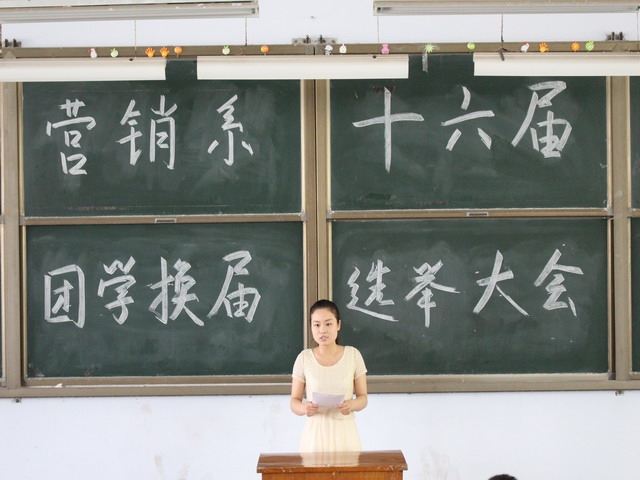 营销系十六届
团学换届选举大会